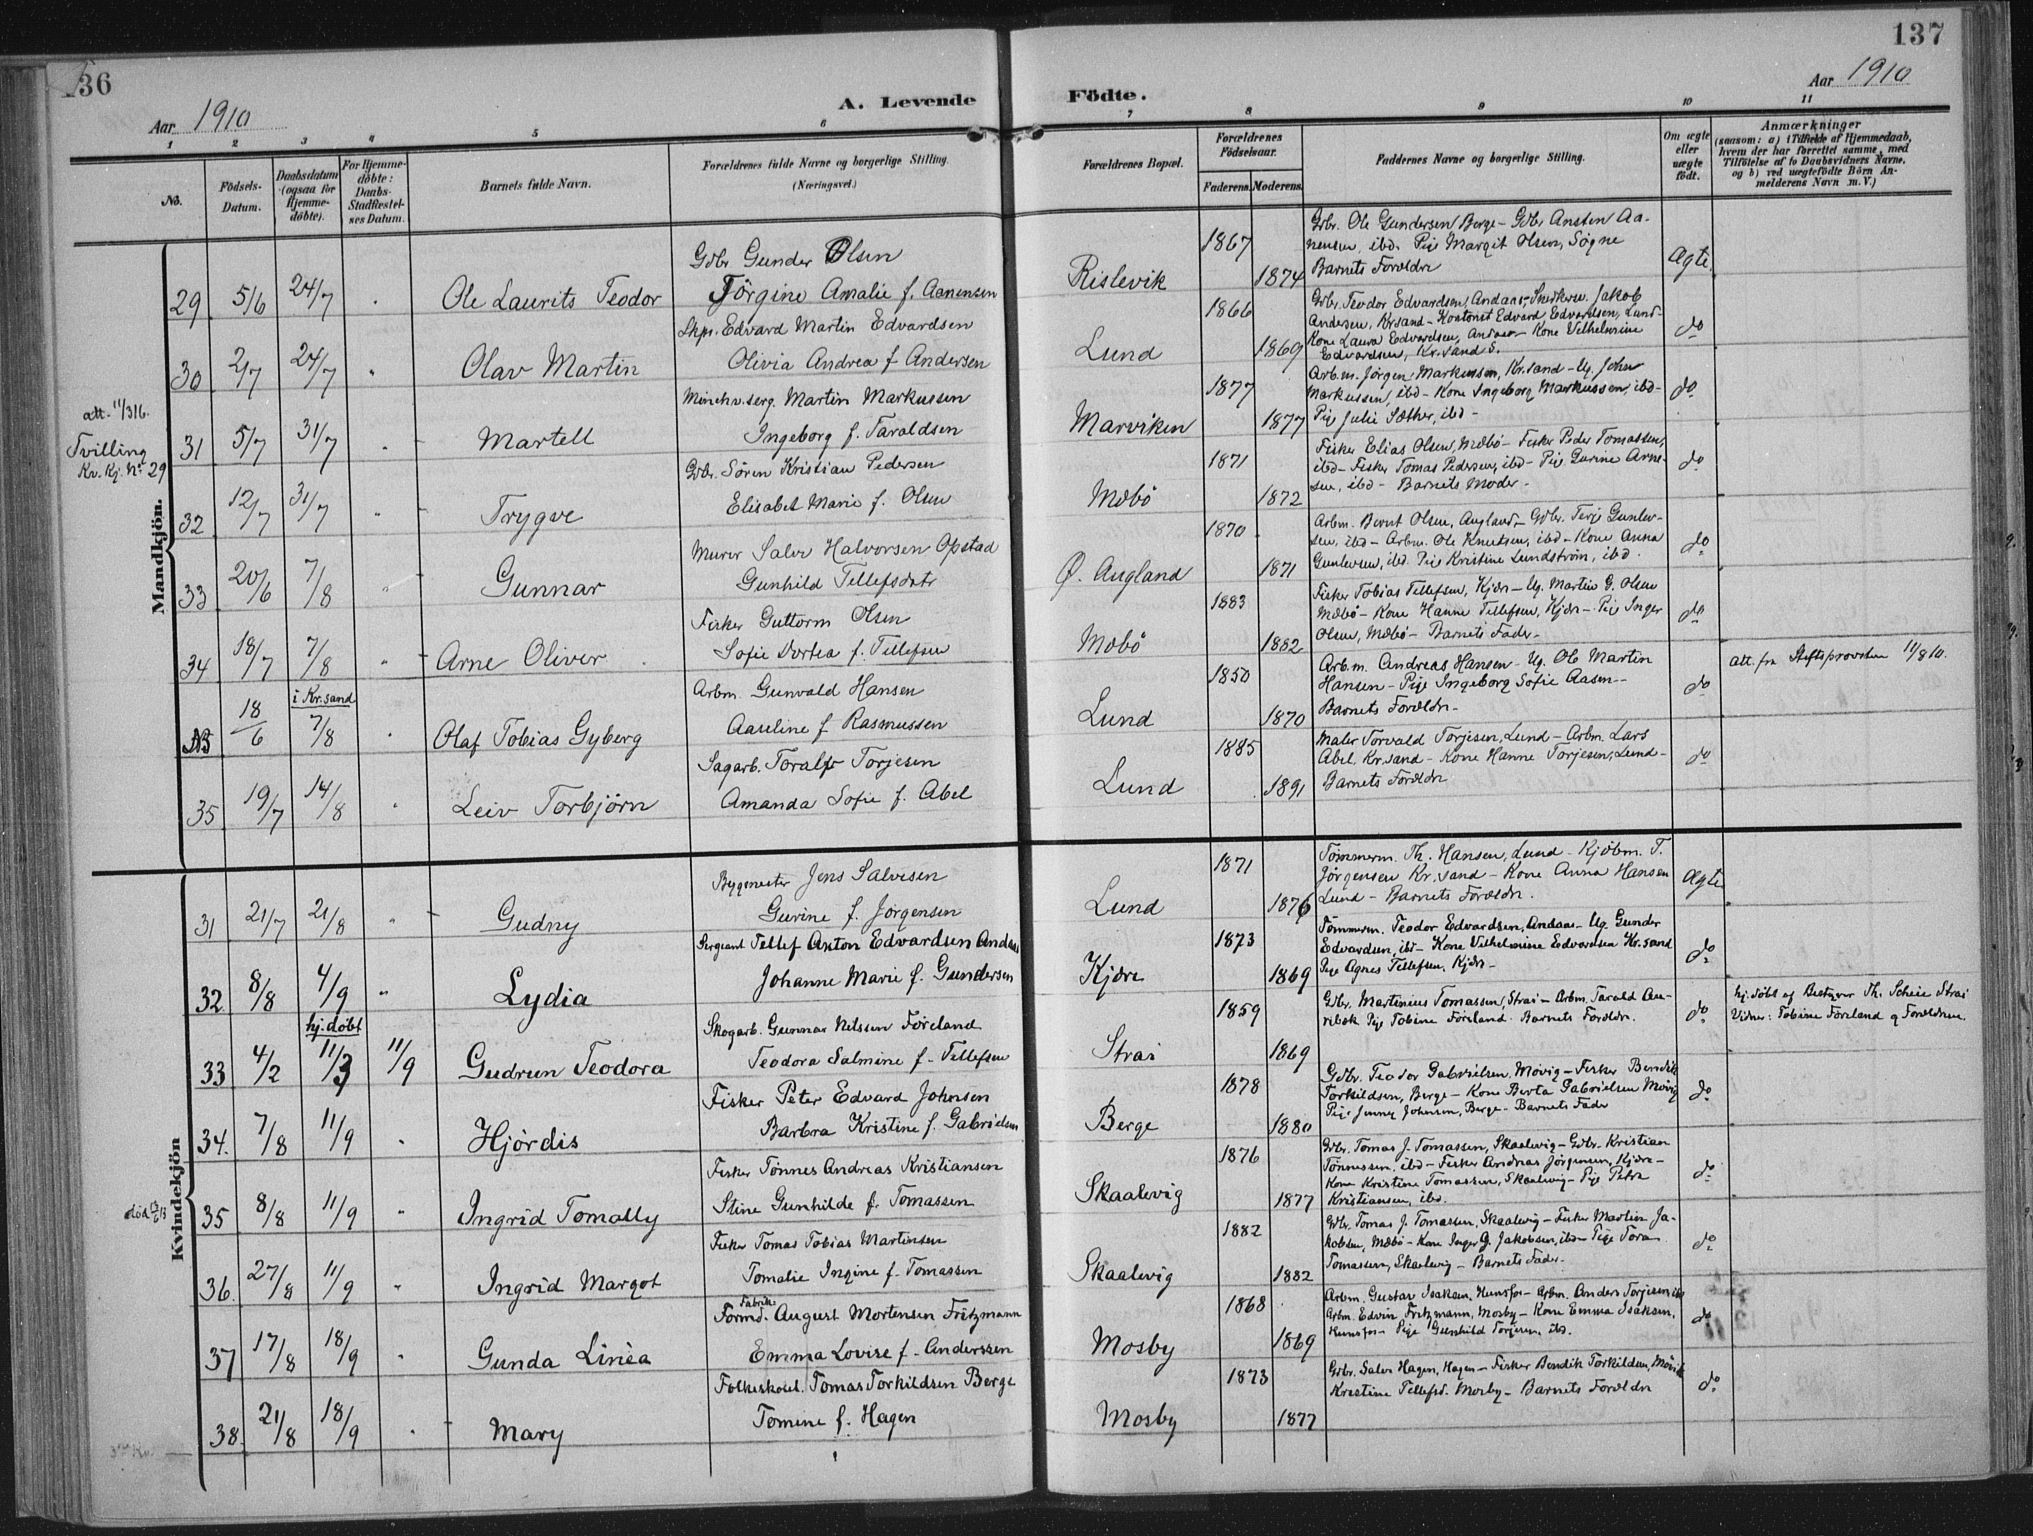 136
137
Aar 1910
A. Levende Födte.
Aar 1910
1 2 3 4 5 6 7 8 9 10 11
No.
Födsels-Datum.
Daabsdatum (ogsaa for Hjemme-döbte).
For Hjemme-döbte: Daabs-Stadfæstel-ses Datum.
Barnets fulde Navn.
Forældrenes fulde Navne og borgerlige Stilling. (Næringsvei.)
Forældrenes Bopæl.
Forældrenes Födselsaar.
Faderens. Moderens.
Faddernes Navne og borgerlige Stilling.
Om ægte eller uægte födt.
Anmærkninger
(saasom: a) i Tilfælde af Hjemmedaab, hvem der har forrettet samme, med Tilföielse af to Daabsvidners Navne, og b) ved uægtefödte Börn An-melderens Navn m. V.)
Mandkjön.
29 5/6 24/7 Ole Laurits Teodor
Gdbr. Gunder Olsen
Jörgine Amalie f. Aanensen
Rislevik 1867 1874
Gdbr. Ole Gundersen Berge - Gdbr Ansten Aa-
nensen, ibd. Pige Margit Olsen, Søgne
Barnets Forældre
Ægte
30 2/7 24/7 Olav Martin
Skps. Edvard Martin Edvardsen
Olivia Andrea f Andersen
Lund 1866 1869
Gdbr. Teodor Edvardsen, Andaas- Snedkersv. Jakob
Andersen, Kr.sand - Kontorist Edvard Edvardsen, Lund-
Kone Laura Edvardsen, Andaas - Kone Vilhelmine
Edvardsen, Kr.sand S.
do
att. 11/3 16.
31 5/7 31/7 Martell
Minehv.serg. Martin Markussen
Ingeborg f. Taraldsen
Marviken 1877 1877
Arb.m. Jörgen Markussen, Kr.sand - Ug. John
Markussen, ibd - Kone Ingeborg Markussen, ibd-
Pige Julie Sæther, ibd -
do
Tvilling
Kv. Kj. No 29
32 12/7 31/7 Trygve
Gdbr. Sören Kristian Pedersen
Elisabet Marie f. Olsen
Mæbö 1871 1872
Fisker Elias Olsen, Mæbö - Fisker Peder Tomassen,
ibd - Fisker Tomas Pedersen, ibd - Pige Gurine Arne-
sen, ibd - Barnets Moder -
do
33 20/6 7/8 Gunnar
Murer Salve Halvorsen Opstad
Gunhild Tellefsdatr
Ø. Augland 1870 1871
Arbm. Bernt Olsen, Augland - Gdbr. Terje Gunlev-
sen, ibd - Arbm. Ole Knutsen, ibd - Kone Anna
Gunlevsen, ibd. Pige Kristine Lundström, ibd.
do
34 18/7 7/8 Arne Oliver
Fisker Guttorm Olsen
Sofie Dortea f. Tellefsen
Mæbö 1883 1882
Fisker Tobias Tellefsen, Kjær - Ug. Martin G. Olsen
Mæbö - Kone Hanne Tellefsen, Kjær - Pige Inger
Olsen, Mæbö - Barnets Fader -
do
NB 18/6 i Kr.sand 7/8 Olaf Tobias Gyberg
Arbm. Gunvald Hansen
Aaseline f Rasmussen
Lund 1850 1870
Arb.m. Andreas Hansen - Ug. Ole Martin
Hansen - Pige Ingeborg Sofie Aasen -
Barnets Forældr -
do
att. fra Stiftsprovsten 11/8 10.
35 19/7 14/8 Leiv Torbjörn
Sagarb. Toralf Torjesen
Amanda Sofie f. Abel
Lund 1885 1891
Maler Torvald Torjesen, Lund - Arbm. Lars
Abel, Kr.sand - Kone Hanne Torjesen, Lund -
Barnets Forældr
do
Kvindekjön
31 21/7 21/8 Gudny
Bygmester Jens Salvesen
Gurine f. Jørgensen
Lund 1871 1876
Tømmerm. Th. Hansen, Lund - Kjöbm. T.
Jörgensen Kr.sand - Kone Anna Hansen
Lund - Barnets Forældr.
Ægte
32 8/8 4/9 Lydia
Sergeant Tellef Anton Edvardsen Andaas
Johanne Marie f. Gundersen
Kjære 1873 1869
Tömmerm. Teodor Edvardsen, Andaas - Ug. Gunder
Edvardsen, ibd - Kone Vilhelmine Edvardsen Kr.sand
Pige Agnes Tellefsen, Kjær -
do
33 4/2 hj. döbt 11/3 11/9 Gudrun Teodora
Skogarb. Gunnar Nilssen Føreland
Teodora Salmine f. Tellefsen
Strai 1859 1869
Gdbr. Martinius Tomassen, Strai - Arbm. Tarald Au-
ribæk Pige Tobine Føreland. Barnets Forældr.
do
hj. döbt af Bestyrer Th. Scheie Strai
Vidner: Tobine Föreland og Forældrene.
34. 7/8 11/9 Hjördis
Fisker Peter Edvard Johnsen
Barbra Kristine f. Gabrielsen
Berge 1878 1880
Gdbr. Teodor Gabrielsen, Møvig - Fisker Bendik
Torkildsen, Berge - Kone Berta Gabrielsen Møvig
Pige Jenny Johnsen, Berge - Barnets Fader
do
35 8/8 11/9 Ingrid Tomally
Fisker Tönnes Andreas Kristiansen
Stine Gunhilde f. Tomassen
Skaalevig 1876 1877
Gdbr. Tomas J. Tomassen, Skaalevig - Gdbr. Kristian
Tönnessen, ibd - Fisker Andreas Jørgensen, Kjære -
Kone Kristine Tomassen, Skaalevig - Pige Petra
Kristiansen, ibd.
do
36. 27/8 11/9 Ingrid Margot
Fisker Tomas Tobias Martinsen
Tomalie Ingine f. Tomassen
Skaalevig 1882 1882
Gdbr. Tomas J. Tomassen, Skaalevig - Fisker Martin Ja-
kobsen, Mæbö - Kone Inger G. Jakobsen, ibd - Pige Tora
Tomassen, Skaalevig - Barnets Fader -
do
37 17/8 18/9 Gunda Linèa
Fabrik-
Formd. August Mortensen Fritzmann
Emma Lovise f. Anderssen
Mosby 1868 1869
Arbm. Gustav Isaksen, Hunsfos - Arbm. Anders Torjesen ibd
Arbm. Edvin Fritzmann, Mosby - Kone Emma Isaksen,
Hunsfos - Pige Gunhild Torjesen, ibd.
do
38. 21/8 18/9 Mary
Folkeskoel. Tomas Torkildsen Berge
Tomine f. Hagen
Mosby 1873 1877
Gdbr. Salve Hagen, Hagen - Fisker Bendik Torkildsen, Mövik
Kristine Tellefsd. Mosby - Barnets Forældr
do